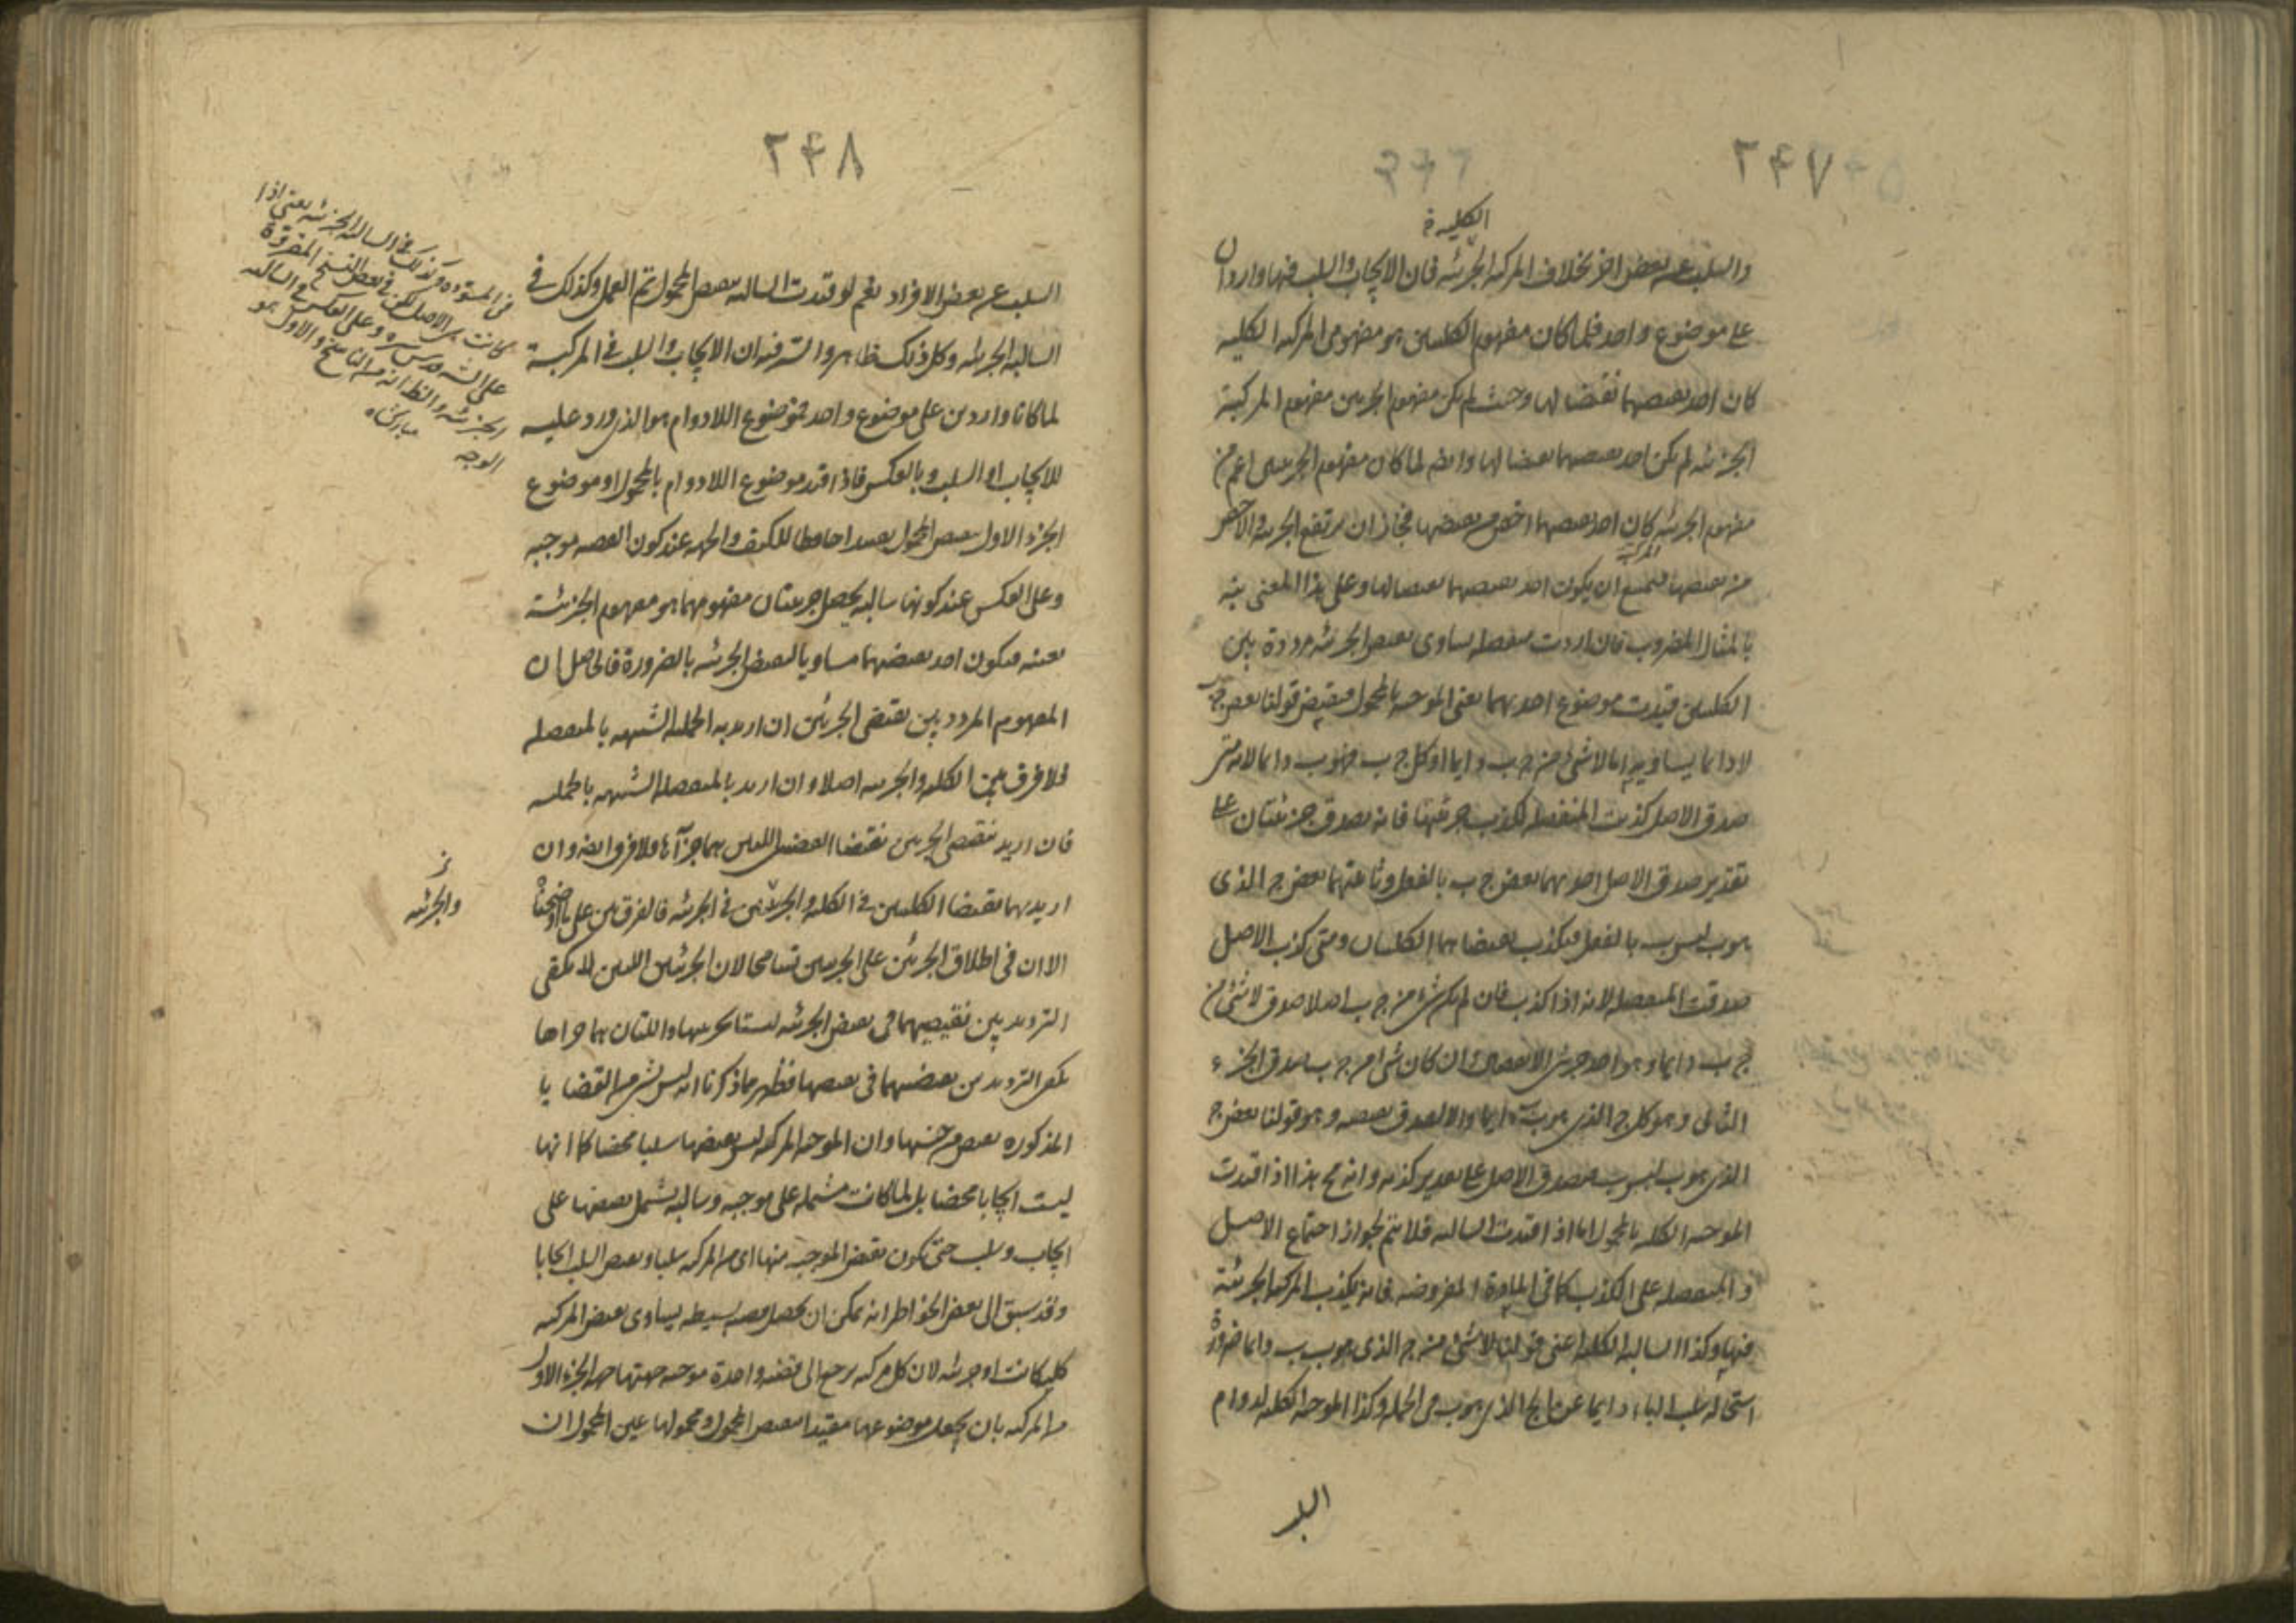 ٢٤٧
الكلية
والسلب عن بعض اخر بخلاف المركبة الجزئية فان الايجاب والسلب فيها واردان
على موضوع واحد فلما كان مفهوم الكليتين هو مفهوم المركبة الكلية
كان احد نقيضيهما نقيضا لها وحيث لم يكن مفهوم الجزئيتين مفهوم المركبة
الجزئية لم يكن احد نقيضيهما نقيضا لها وايضا لما كان مفهوم الجزئيتين اعم من
مفهوم الجزئية كان احد نقيضيهما اخص من نقيضها فجاز ان يرتفع الجزئية والاخص
من نقيضها فيمتنع ان يكون احد نقيضيهما نقيضا لها وعلى هذا المعنى نبه
بالمثال المضروب فان اردت منفصلة يساوى نقيض الجزئية مرددة بين
الكليتين قيدت موضوع احديهما يعنى الموجبة بالمحمول فنقيض قولنا بعض ج ب
لا دائما يساويه اما لا شئ من ج ب دايما او كل ج ب فهو ب دايما لانه متى
صدق الاصل كذبت المنفصلة لكذب جزئيها فانه يصدق جزئيتان على
تقدير صدق الاصل احديهما بعض ج ب بالفعل وثانيتهما بعض ج الذى
هو ب ليس ب بالفعل فيكذب نقيضاهما الكليتان ومتى كذب الاصل
صدقت المنفصلة لانه اذا كذب فان لم يكن شئ من ج ب اصلا صدق لا شئ من
ج ب دايما وهو احد جزئى الانفصال وان كان شئ من ج ب صدق الجزء
الثانى وهو كل ج الذى هو ب ب دايما والا لصدق نقيضه وهو قولنا بعض ج
الذى هو ب ليس ب فيصدق الاصل على تقدير كذبه وانه مح هذا اذا قيدت
الموجبة الكلية بالمحمول اما اذا قيدت السالبة فلا يتم لجواز اجتماع الاصل
والمنفصلة على الكذب كما فى المادة المفروضة فانه يكذب المركبة الجزئية
فيها وكذا السالبة الكلية اعنى قولنا لا شئ من ج الذى هو ب ب دايما ضرورة
استحالة سلب الباء دايما عن الج الذى هو ب فى الجملة وكذا الموجبة الكلية لدوام
السلب
٢٤٨
السلب عن بعض الافراد نعم لو قيدت السالبة بنقيض المحمول تم العمل وكذلك فى
السالبة الجزئية وكل ذلك ظاهر والسر فيه ان الايجاب والسلب فى المركبة
لما كانا واردين على موضوع واحد فموضوع اللادوام هو الذى ورد عليه
الايجاب او السلب وبالعكس فاذا قيد موضوع اللادوام بالمحمول او موضوع
الجزء الاول بنقيض المحمول تقييدا حافظا للكيف والجهة عند كون القضية موجبة
وعلى العكس عند كونها سالبة يحصل جزئيتان مفهومهما هو مفهوم الجزئية
بعينه فيكون احد نقيضيهما مساويا لنقيض الجزئية بالضرورة فالحاصل ان
المفهوم المردد بين نقيضى الجزئين ان اريد به الحملية الشبيهة بالمنفصلة
فلا فرق بين الكلية والجزئية اصلا وان اريد بالمنفصلة الشبيهة بالحملية
فان اريد بنقيضى الجزئين نقيضا القضيتين اللتين هما جزآها فلا فرق ايضا وان
اريد بهما نقيضا الكليتين فى الكلية والجزئيتين فى الجزئية فالفرق بين على ما اوضحنا
الا ان فى اطلاق الجزئين على الجزئيتين تسامحا لان الجزئيتين اللتين لا يكفى
الترديد بين نقيضيهما فى نقيض الجزئية ليستا بجزئيها واللتان هما جزاها
يكفى الترديد بين نقيضيهما فى نقيضها فظهر مما ذكرنا انه ليس شئ من القضايا
المذكورة نقيض من جنسها وان الموجبة المركبة ليس نقيضها سلبا محضا كما انها
ليست ايجابا محضا بل لما كانت مشتملة على موجبة وسالبة يشتمل نقيضها على
ايجاب وسلب حتى يكون نقيض الموجبة منها اى من المركبة سلبا ونقيض السلب ايجابا
وقد سبق الى بعض الخواطر انه يمكن ان يحصل قضية بسيطة يساوى نقيض المركبة
كلية كانت او جزئية لان كل مركبة يرجع الى قضية واحدة موجبة جهتها جهة الجزء الاول
من المركبة بان يجعل موضوعها مقيدا بنقيض المحمول ومحمولها عين المحمول ان
والجزئية
فى المسودة وكذلك فى السالبة الجزئية يعنى اذا
كانت هى الاصل لكن فى بعض النسخ المقروة
على الش قدس سره وعلى العكس فى السالبة
الجزئية والظ انه من الناسخ والاول هو
الوجه مباركشاه